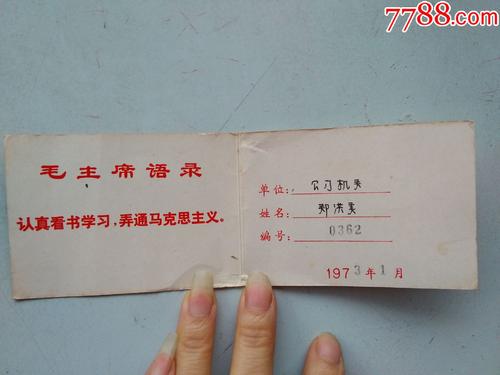 7788.com
毛主席语录
认真看书学习，弄通马克思主义。
单位：公司机关
姓名：郑洪美
编号：0362
1973年1月